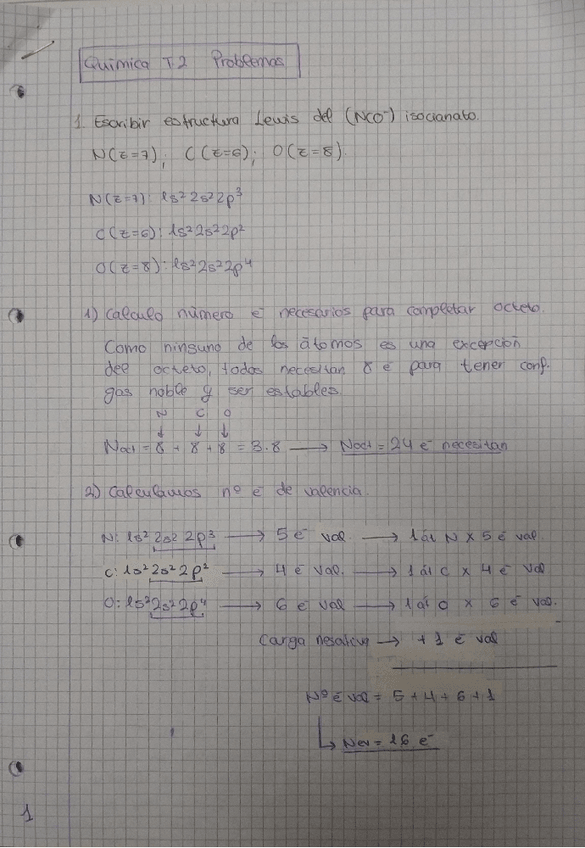 Química T.2 Problemas
1. Escribir estructura Lewis del (NCO⁻) isocianato.
N(z=7); C(z=6); O(z=8).
N(z=7): 1s² 2s² 2p³
C(z=6): 1s² 2s² 2p²
O(z=8): 1s² 2s² 2p⁴
1) Calculo número e⁻ necesarios para completar octeto.
Como ninguno de los átomos es una excepción
del octeto, todos necesitan 8 e⁻ para tener conf.
gas noble y ser estables.
N C O
↓ ↓ ↓
Noct = 8 + 8 + 8 = 3·8 → Noct = 24 e⁻ necesitan
2) Calculamos nº e⁻ de valencia.
N: 1s² 2s² 2p³ → 5 e⁻ val → 1 át N x 5 e⁻ val
C: 1s² 2s² 2p² → 4 e⁻ val. → 1 át C x 4 e⁻ val
O: 1s² 2s² 2p⁴ → 6 e⁻ val → 1 át O x 6 e⁻ val.
Carga negativa → +1 e⁻ val
Nº e⁻ val = 5 + 4 + 6 + 1
↳ Nev = 16 e⁻
1